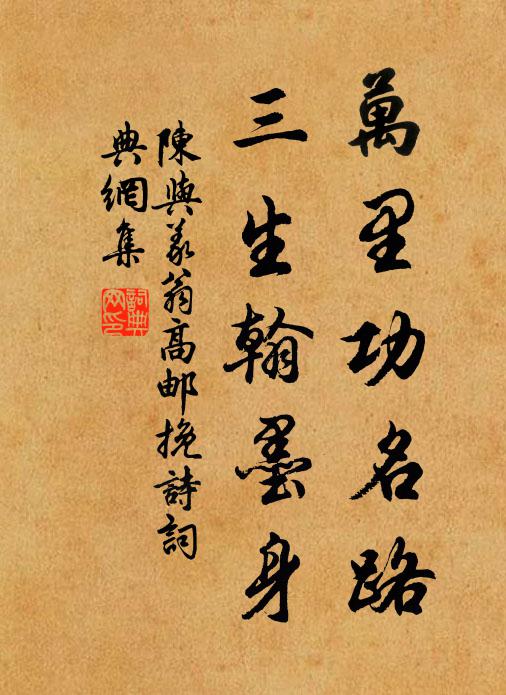 萬里功名路
三生翰墨身
陳與義翁高邮挽詩詞
典網集
詞典
网印